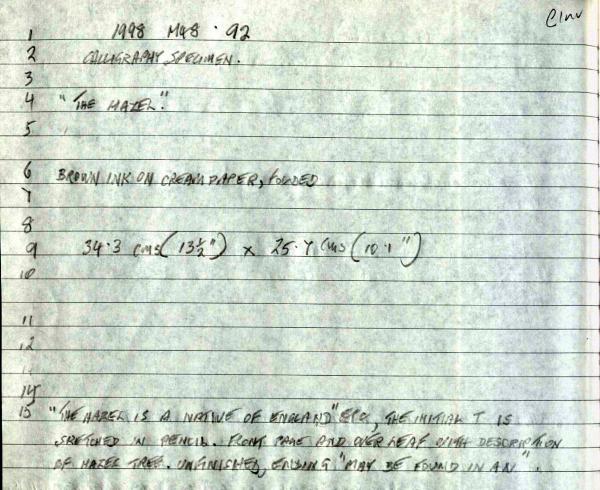 1 1998 M98 · 92
2 CALLIGRAPHY SPECIMEN.
3
4 "THE HAZEL."
5
6 BROWN INK ON CREAM PAPER, FOLDED
7
8
9 34·3 cms (13½") x 25·7 cms (10·1")
10
11
12
14
15 "THE HAZEL IS A NATIVE OF ENGLAND" ETC, THE INITIAL T IS
SKETCHED IN PENCIL. FRONT PAGE AND OVERLEAF WITH DESCRIPTION
OF HAZEL TREE. UNFINISHED, ENDING "MAY BE FOUND IN AN".